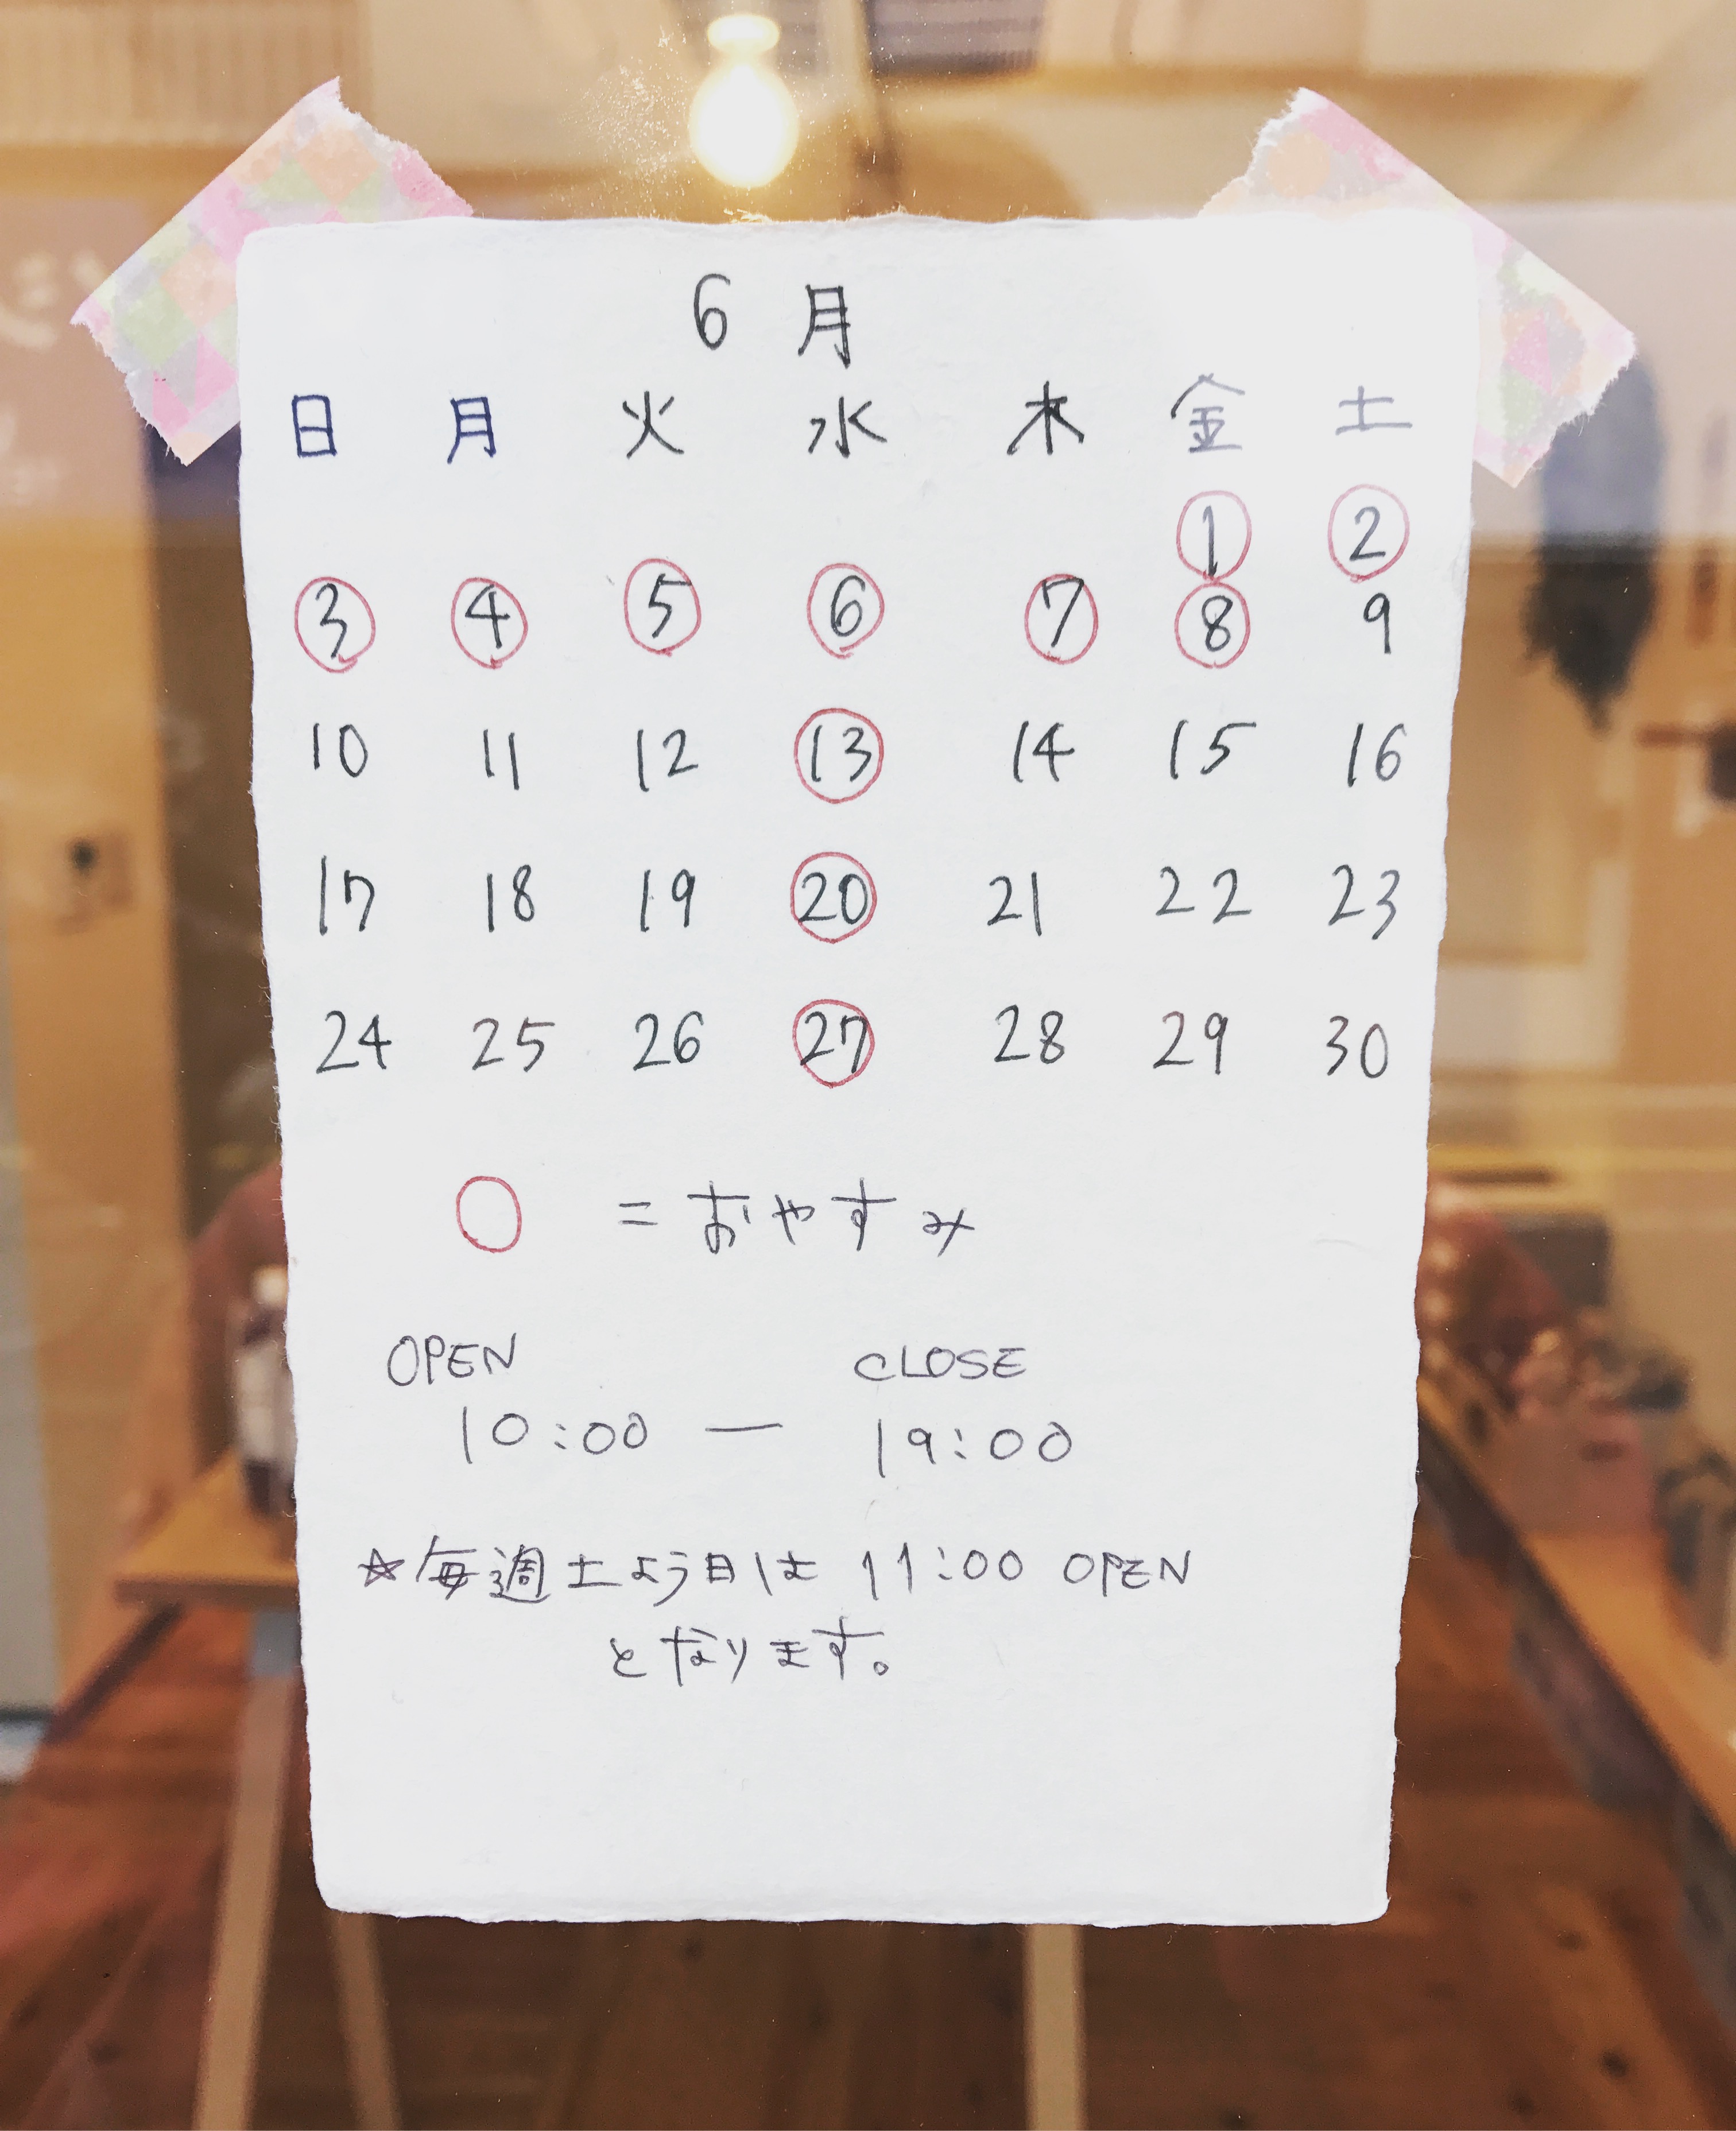 6月
日 月 火 水 木 金 土
1 2
3 4 5 6 7 8 9
10 11 12 13 14 15 16
17 18 19 20 21 22 23
24 25 26 27 28 29 30
○ = おやすみ
OPEN CLOSE
10:00 — 19:00
☆毎週土よう日は 11:00 OPEN
となります。